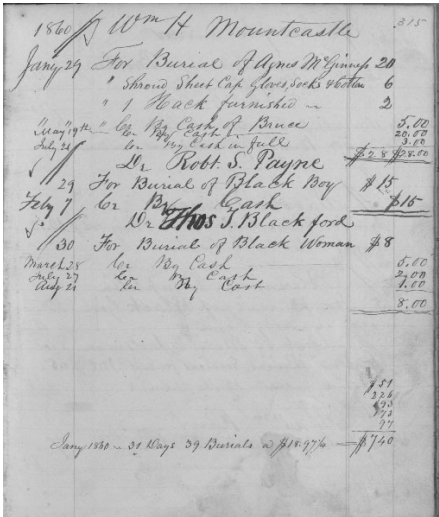 1860 Wm H Mountcastle 315
Jany 29 For Burial of Agnes McGinness 20
" Shroud Sheet Cap Gloves, Socks & Cotton 6
" 1 Hack furnished 2
" " Cr By Cash of Bruce 5.00
" May 19th " Cr By Cash 20.00
July 21 Cr By Cash in full 3.00
$28 $28.00
Dr Robt. S. Payne
29 For Burial of Black Boy $15
Feby 7 Cr By Cash $15
Dr Thos J. Blackford
30 For Burial of Black Woman $8
March 28 Cr By Cash 5.00
July 27 Cr By Cash 2.00
Aug 21 Cr By Cost 1.00
8.00
$151
226
193
73
97
Jany 1860 31 Days 39 Burials a $18.97 $740